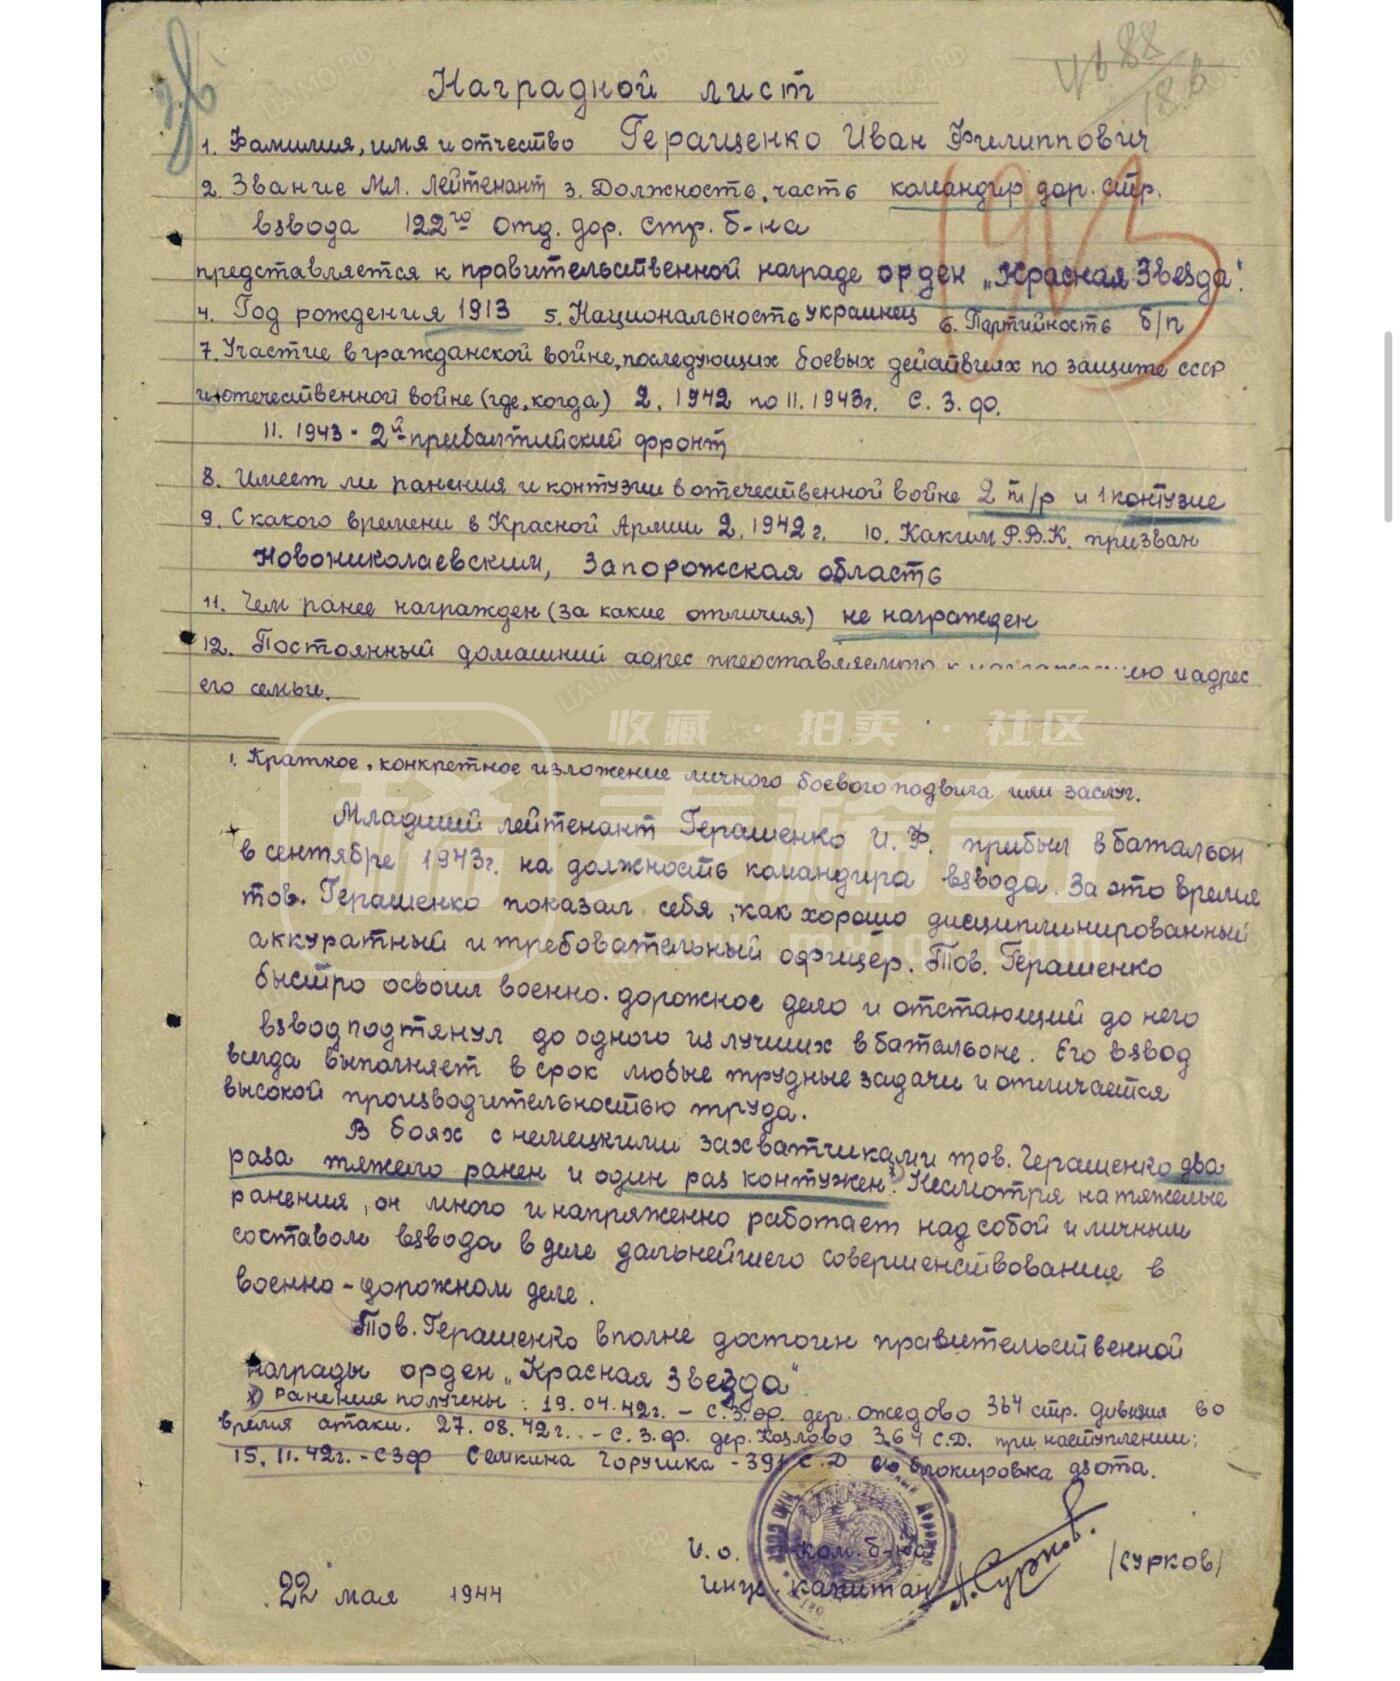 Наградной лист
1. Фамилия, имя и отчество Геращенко Иван Филиппович
2. Звание Мл. лейтенант 3. Должность, часть командир дор. стр.
взвода 122го отд. дор. стр. б-на
представляется к правительственной награде орден „Красная Звезда".
4. Год рождения 1913 5. Национальность украинец 6. Партийность б/п
7. Участие в гражданской войне, последующих боевых действиях по защите СССР
и отечественной войне (где, когда) 2. 1942 по 11. 1943г. С. З. ф.
11. 1943 - 2й прибалтийский фронт
8. Имеет ли ранения и контузии в отечественной войне 2 т/р и 1 контузие
9. С какого времени в Красной Армии 2. 1942 г. 10. Каким Р.В.К. призван
Новониколаевским, Запорожская область
11. Чем ранее награжден (за какие отличия) не награжден
12. Постоянный домашний адрес представляемого к и адрес
его семьи.
收藏 · 拍卖 · 社区
1. Краткое, конкретное изложение личного боевого подвига или заслуг.
Младший лейтенант Геращенко И. Ф. прибыл в батальон
в сентябре 1943г. на должность командира взвода. За это время
тов. Геращенко показал себя, как хорошо дисциплинированный
аккуратный и требовательный офицер. Тов. Геращенко
быстро освоил военно-дорожное дело и отстающий до него
взвод подтянул до одного из лучших в батальоне. Его взвод
всегда выполняет в срок любые трудные задачи и отличается
высокой производительностью труда.
В боях с немецкими захватчиками тов. Геращенко два
раза тяжело ранен и один раз контужен. Несмотря на тяжелые
ранения, он много и напряженно работает над собой и личным
составом взвода в деле дальнейшего совершенствования в
военно-дорожном деле.
Тов. Геращенко вполне достоин правительственной
награды орден „Красная Звезда".
х) Ранения получены: 19.04.42г. - С.З.ф. дер. Ожедово 364 стр. дивизия во
время атаки. 27.08.42г. - С.З.ф. дер. Козлово 364 С.Д. при наступлении;
15.11.42г. - СЗФ Семкина Горушка - 391 С.Д блокировка дзота.
И. о. ком. б-на
инж. капитан А. Сурков. /Сурков/
22 мая 1944